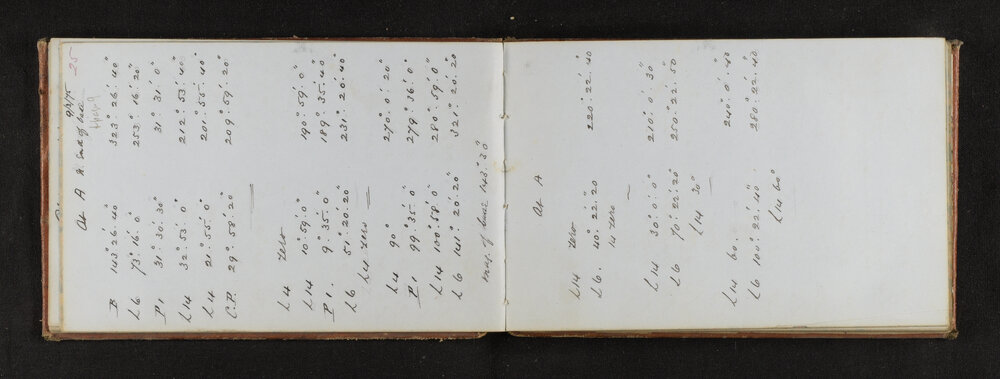 25
9/2/75
At A N. End of base
B 143° 26' 40" 323° 26' 40"
L6 73° 16' 0" 253° 16' 20"
P1 31° 30' 30" 31° 31' 0"
L14 32° 53' 0" 212° 53' 40"
L14 21° 55' 0" 201° 55' 40"
C.P. 29° 58' 20" 209° 59' 20"
L4 zero
L14 10° 59' 0" 190° 59' 0"
P1. 9° 35' 0" 189° 35' 40"
L6 51° 20' 20" 231° 20' 40"
L4 zero
L4 90° 270° 0' 20"
P1 99° 35' 0 279° 36' 0"
L14 100° 58' 0" 280° 59' 0"
L6 141° 20' 20" 321° 20' 20"
mag. of base 143° 30"
At A
L14 zero
L6. 40° 22' 20 220° 22' 40
14 zero
L14 30° 0' 0" 210° 0' 30"
L6 70° 22' 20" 250° 22' 50
L14 30°
L14 60. 240° 0' 40"
L6 100° 22' 40" 280° 22' 40
L14 60°